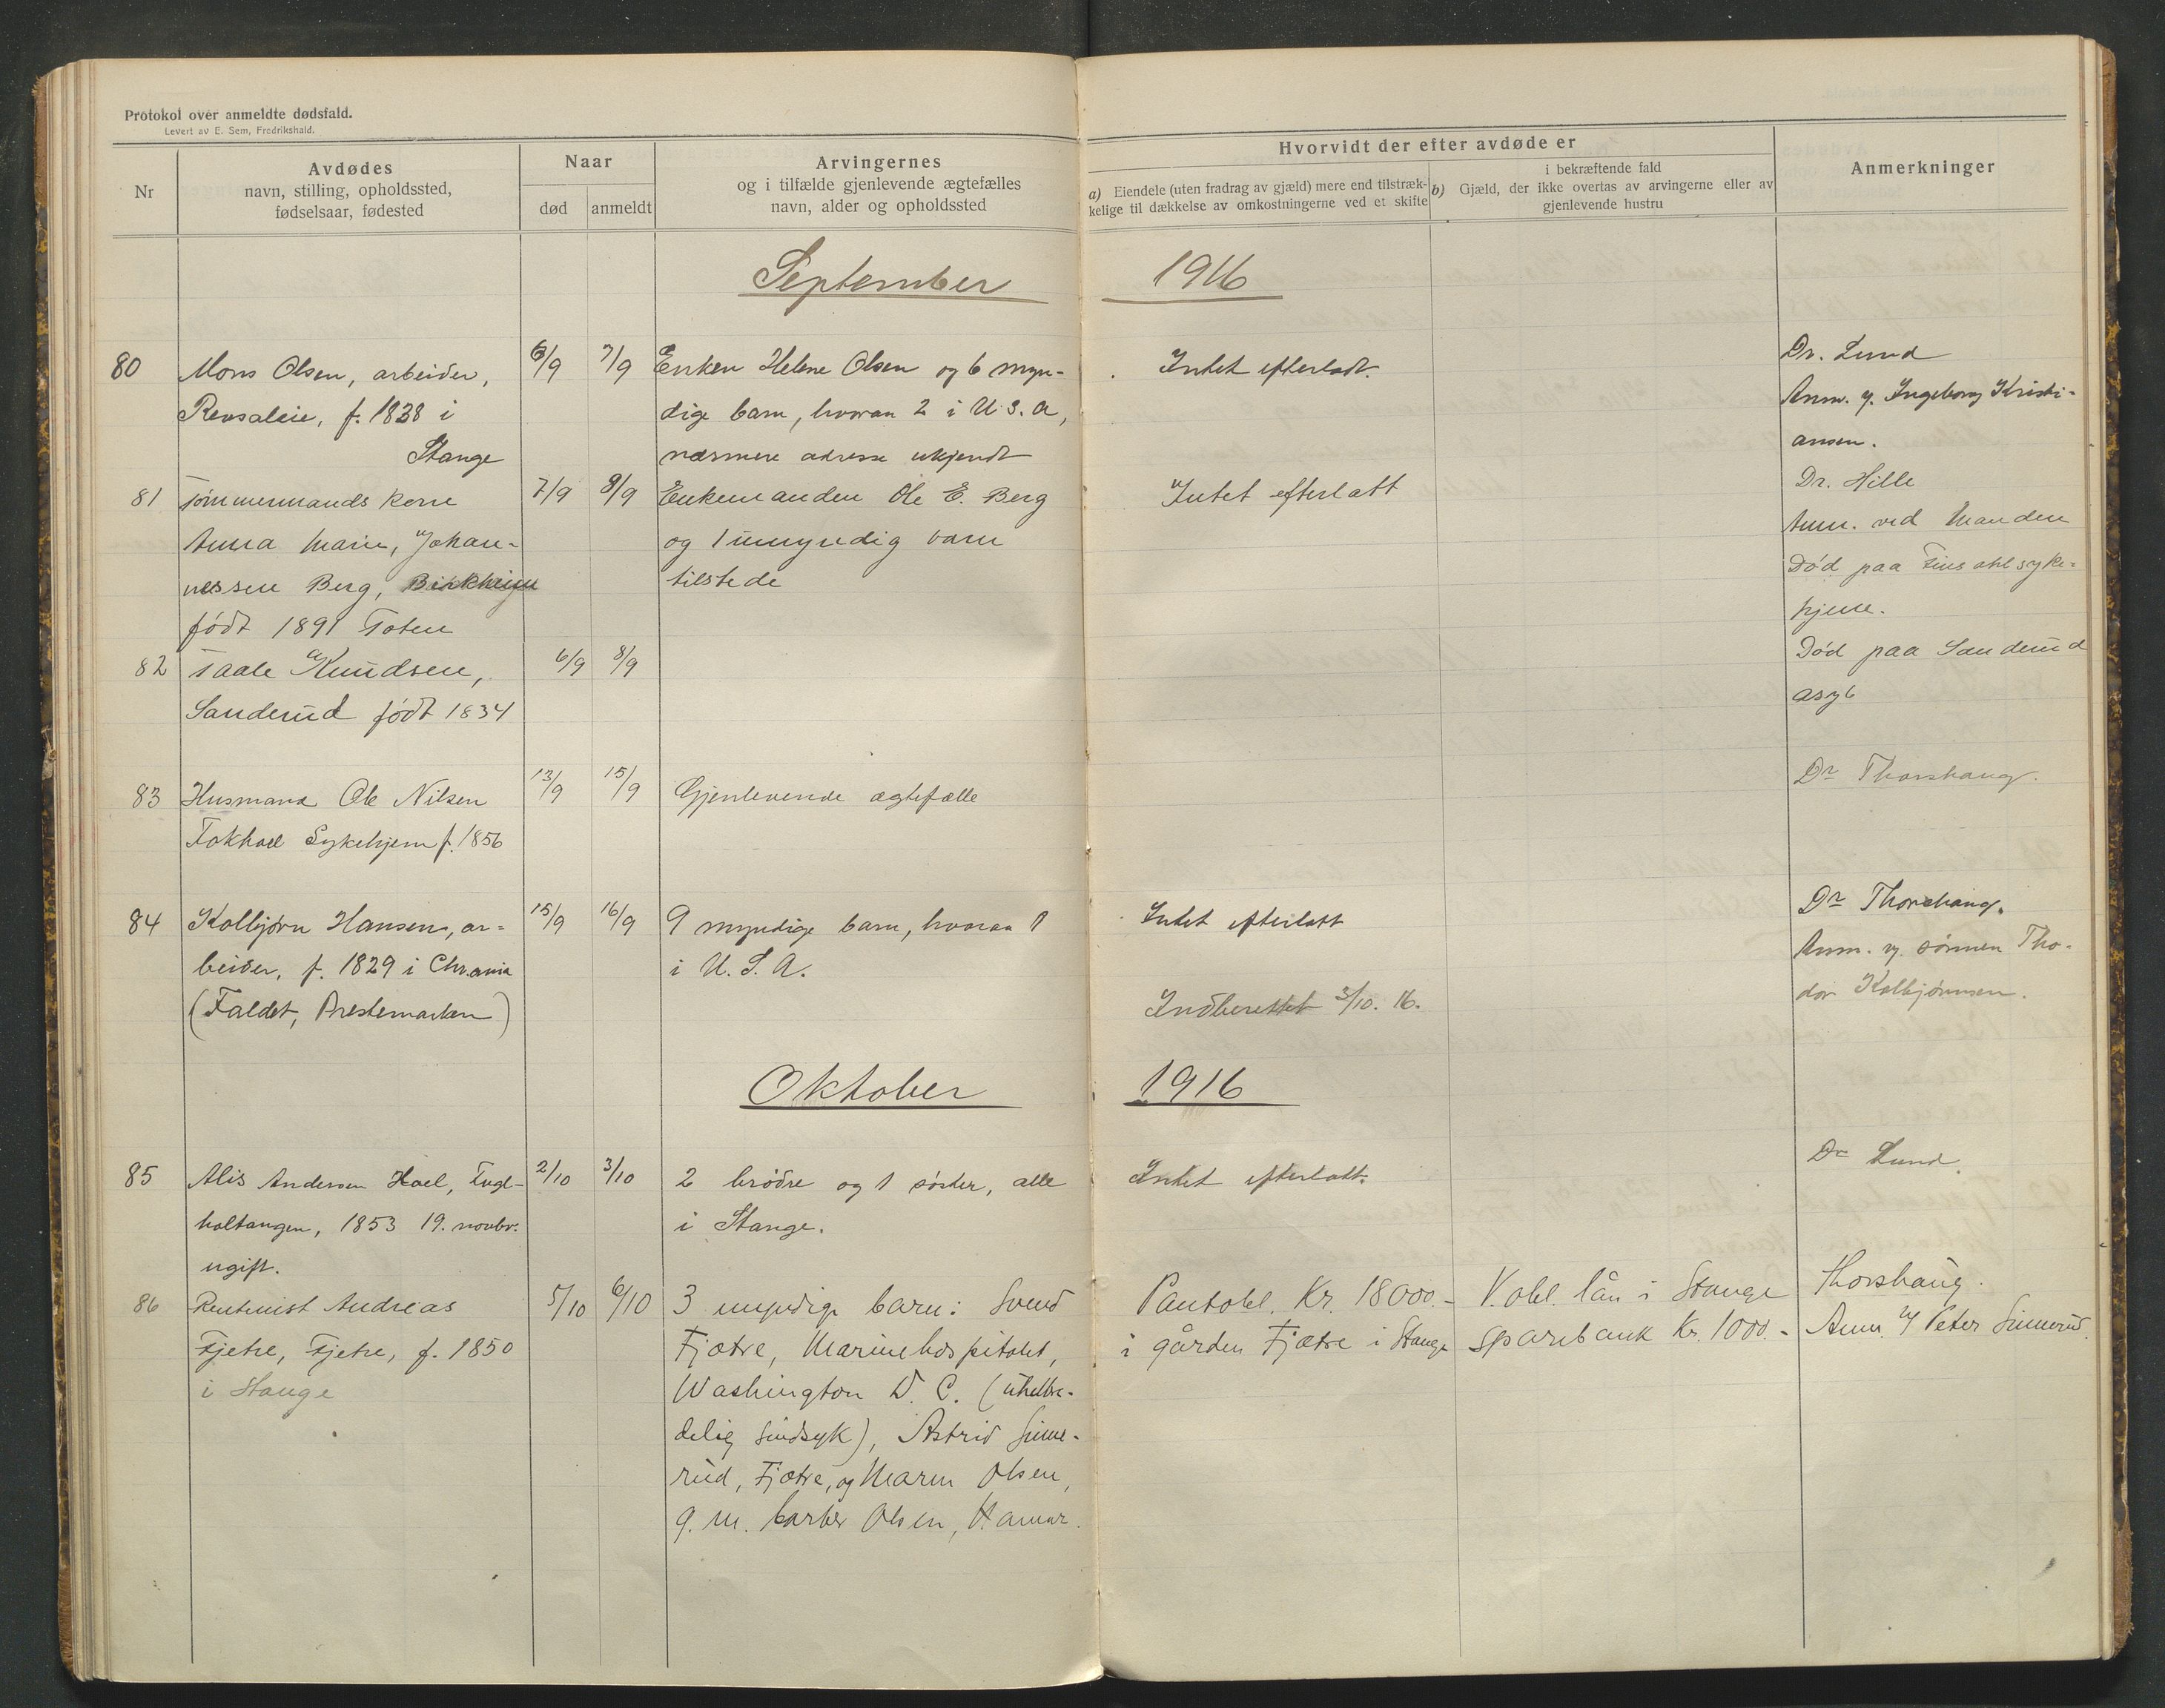 Protokol over anmeldte dødsfald.
Levert av E. Sem, Fredrikshald.
Nr
Avdødes
navn, stilling, opholdssted,
fødselsaar, fødested
Naar
død
anmeldt
Arvingernes
og i tilfælde gjenlevende ægtefælles
navn, alder og opholdssted
Hvorvidt der efter avdøde er
a) Eiendele (uten fradrag av gjæld) mere end tilstræk-
kelige til dækkelse av omkostningerne ved et skifte
i bekræftende fald
b) Gjæld, der ikke overtas av arvingerne eller av
gjenlevende hustru
Anmerkninger
September 1916
80
Mons Olsen, arbeider,
f. 1838 i
Stange
6/9
7/9
Enken Helene Olsen og 6 myn-
dige barn, hvorav 2 i U.S.A,
nærmere adresse ukjendt
Intet efterladt.
Dr. Lund
Anm. v. Ingeborg Kristi-
ansen.
81
Tømmermands kone
Anna Marie, Johan-
nessen Berg,
født 1891 Toten
7/9
8/9
Enkemanden Ole E. Berg
og 1 umyndig barn
tilstede
Intet efterlatt
Dr. Hille
Anm. ved Manden
Død paa syke-
hjem.
82
Taale Knudsen,
Sanderud født 1834
6/9
8/9
Død paa Sanderud
asyl
83
Husmand Ole Nilsen
Fokhoel Sykehjem f. 1856
13/9
15/9
Gjenlevende ægtefælle
Dr Thorshaug.
84
Kolbjørn Hansen, ar-
beider, f. 1829 i Chr.ania
(Faldet, Prestemarken)
15/9
16/9
9 myndige barn, hvorav 1
i U.S.A.
Intet efterlatt
Indberettet 3/10. 16.
Dr Thorshaug.
Anm. v. sønnen Tho-
dor Kolbjørnsen.
Oktober 1916
85
Alis Andersen Hoel, Fugl-
holtangen, 1853 19. novbr.
ugift.
2/10
3/10
2 brødre og 1 søster, alle
i Stange.
Intet efterlatt.
Dr Lund.
86
Rentenist Andreas
Fjetre, Fjetre, f. 1850
i Stange
5/10
6/10
3 myndige barn: Svend
Fjætre, Marinehospitalet,
Washington D. C. (uhelbre-
delig sindsyk), Astrid Sinne-
rud, Fjætre, og Maren Olsen,
g. m. barber Olsen, Hamar.
Pantobl. Kr. 18000.-
i gården Fjætre i Stange
V. obl. lån i Stange
sparebank Kr. 1000.-
Thorshaug.
Anm. v/ Peter Sinnerud.